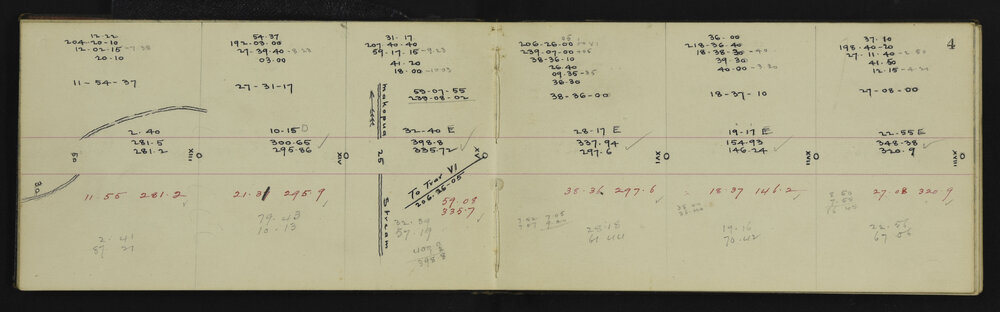 12.22
204-20-10
12-02-15 -7.38
20.10
11-54-37
2.40
281.5
281.2
50
XIII
30
11.55 281.2
2.41
87.27
54.37
192-03-00
27-39-40 -8.23
03.00
27-31-17
10-15 D
300.65
295.86
XIV
21.31 295.9
79.43
10.13
31.17
207-40-40
59-17-15 -9.23
41.20
18.00 -10.03
59-07-55
239-08-02
makopua
32-40 E
398.8
335.72
25
XV
To Trav VI
206.26-05
Stream
59.08
335.7
32.34
57.19
05
206-26-00
239.07-00
38-36-10
26.40
09.35
36.30
38-36-00
28-17 E
337.94
297.6
XVI
38.36 297.6
28.18
61.44
36.00
218-36-40
18-38-30
39.30
40-00 -3.20
18-37-10
19-17 E
154.93
146.24
XVII
18.37 146.2
19-16
70.42
4
37.10
198-40-20
27-11-40
41.50
12.15
27-08-00
22.55 E
348.38
320.9
XVIII
8.50
27.08 320.9
22.56